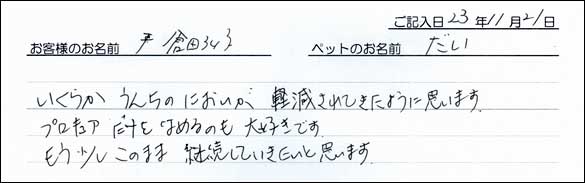 ご記入日 23年11月21日
お客様のお名前 倉田 ペットのお名前 だい
いくらか うんちの においが 軽減されてきたように思います
プロキュア だけを なめるのも 大好きです
もう少し このまま 継続していきたいと思います